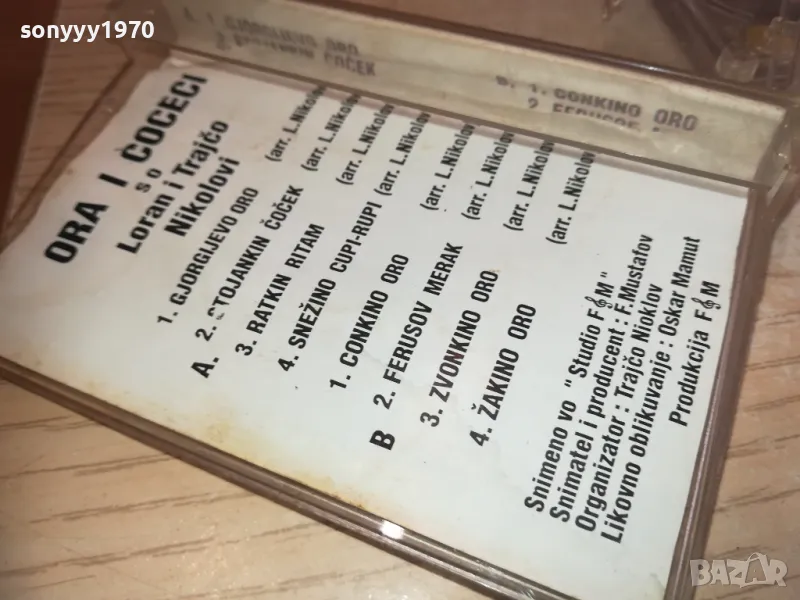 sonyyy1970
A. 1. GJORGIJEVO ORO
ČOČEK
B. 1. CONKINO ORO
2. FERUSOV
ORA I COCECI
so
Loran i Trajčo
Nikolovi
A.
1. GJORGIJEVO ORO (arr. L.Nikolov
2. STOJANKIN ČOČEK (arr. L.Nikolov
3. RATKIN RITAM (arr. L.Nikolov
4. SNEŽINO CUPI-RUPI (arr. L.Nikolov
B
1. CONKINO ORO (arr. L.Nikolov
2. FERUSOV MERAK (arr. L.Nikolov
3. ZVONKINO ORO (arr. L.Nikolov
4. ŽAKINO ORO (arr. L.Nikolov
Snimeno vo "Studio F&M"
Snimatel i producent : F.Mustafov
Organizator : Trajčo Nioklov
Likovno oblikuvanje : Oskar Mamut
Produkcija F&M
BAZAR